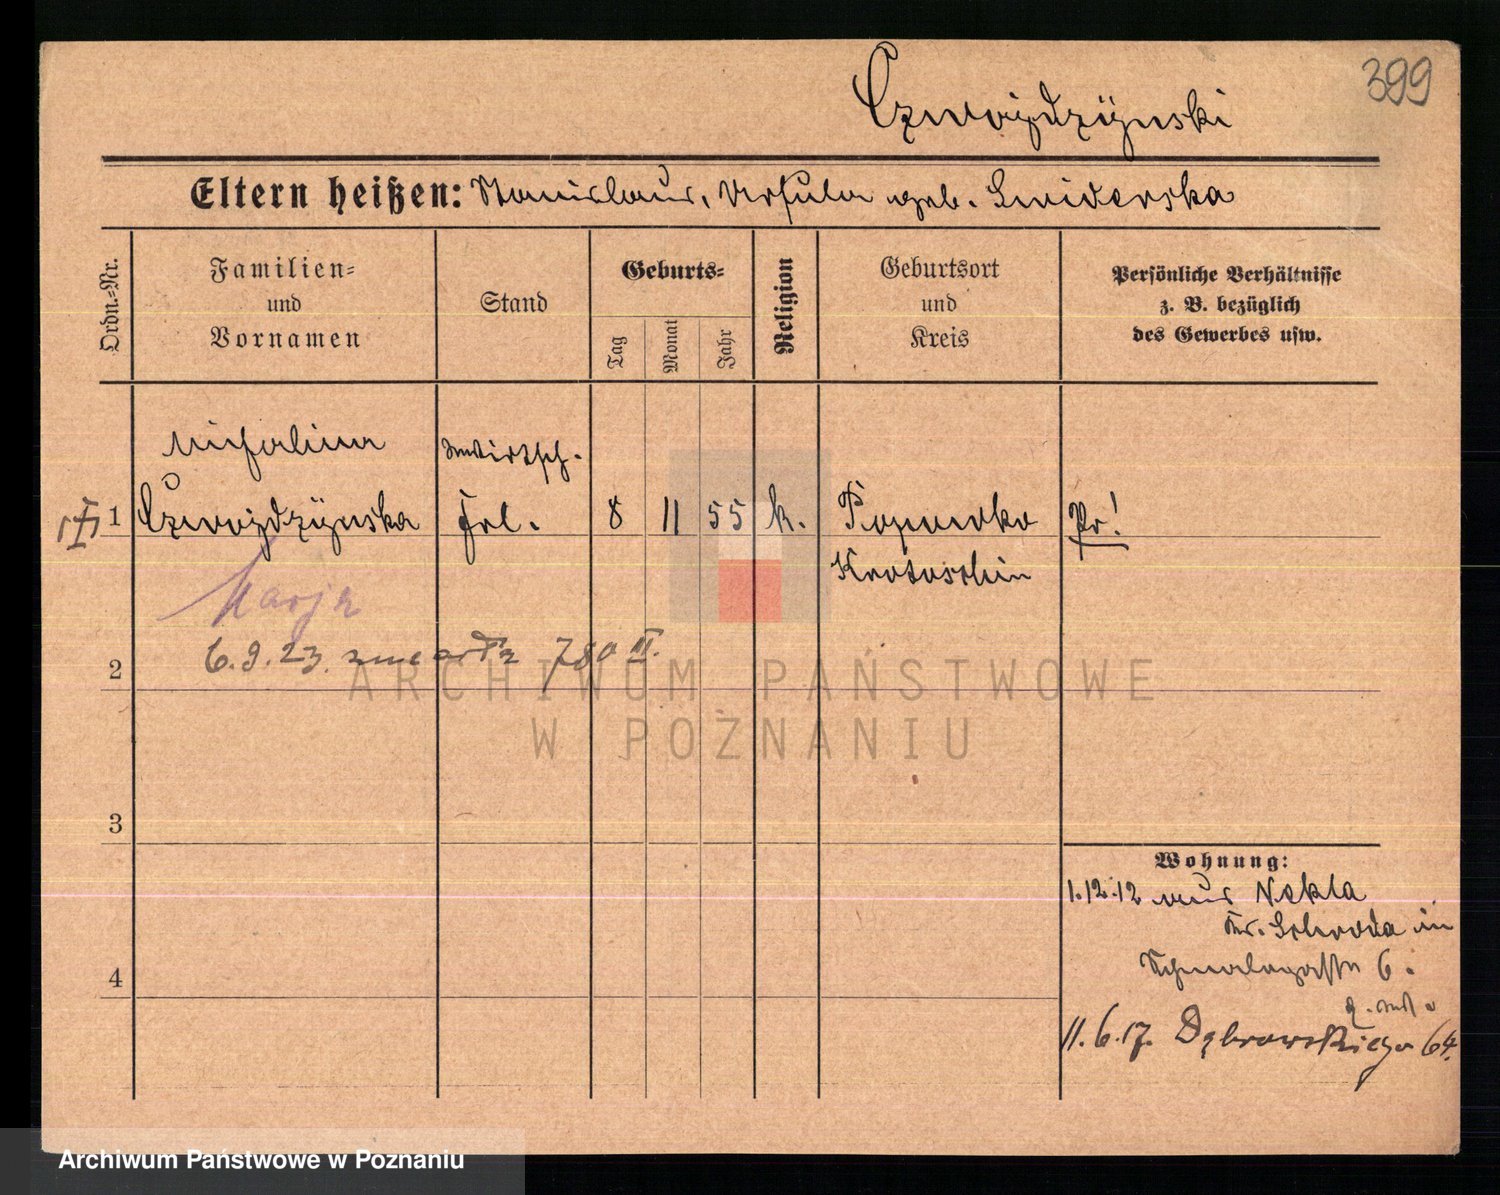 399
Czwojdzÿnski
Eltern heißen: Stanislaus, Ursula geb. Swiderska
Ordn.-Nr.
Familien-
und
Vornamen
Stand
Geburts-
Tag
Monat
Jahr
Religion
Geburtsort
und
Kreis
Persönliche Verhältnisse
z. B. bezüglich
des Gewerbes usw.
1
Michalina
Czwojdzÿnska
Frl.
8
11
55
k.
Krotoschin
Pr!
Marja
2
6.9.23. zmarła 780 III.
3
4
Wohnung:
1.12.12 aus Nekla
Kr. Schroda in
6.
11.6.17. Dąbrowskiego 64.
ARCHIWUM PAŃSTWOWE
W POZNANIU
Archiwum Państwowe w Poznaniu